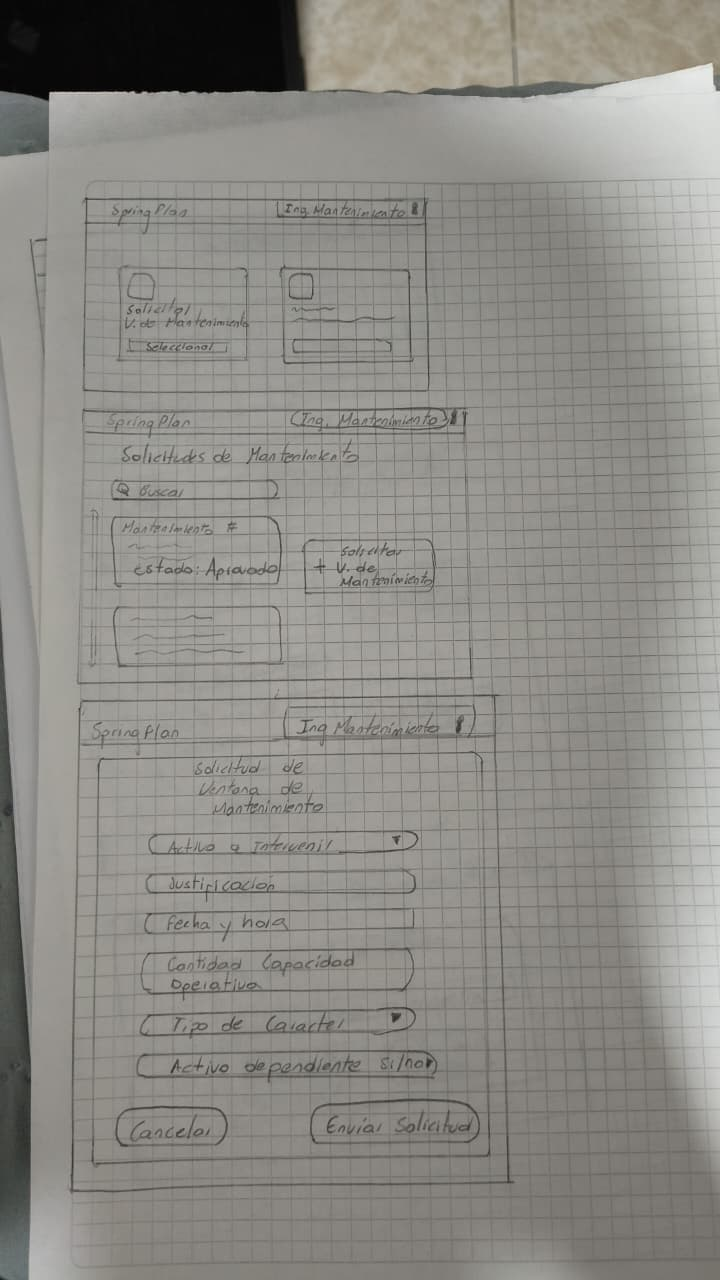 Spring Plan
Ing. Mantenimiento
Solicitar
V. de Mantenimiento
Seleccionar
Spring Plan
Ing. Mantenimiento
Solicitudes de Mantenimiento
Buscar
Mantenimiento #
Estado: Aprovado
Solicitar
+ V. de
Mantenimiento
Spring Plan
Ing Mantenimiento
Solicitud de
Ventana de
Mantenimiento
Activo a Intervenir
Justificación
Fecha y hora
Cantidad Capacidad
Operativa
Tipo de Caracter
Activo dependiente si/no
Cancelar
Enviar Solicitud